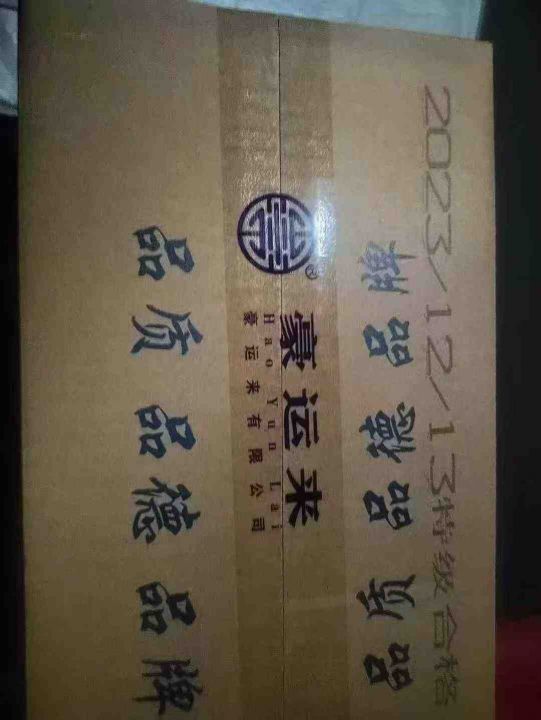 2023/12/13特级合格
品质 品德 品牌
®
豪运来
Hao Yun Lai
豪运来有限公司
品质 品德 品牌